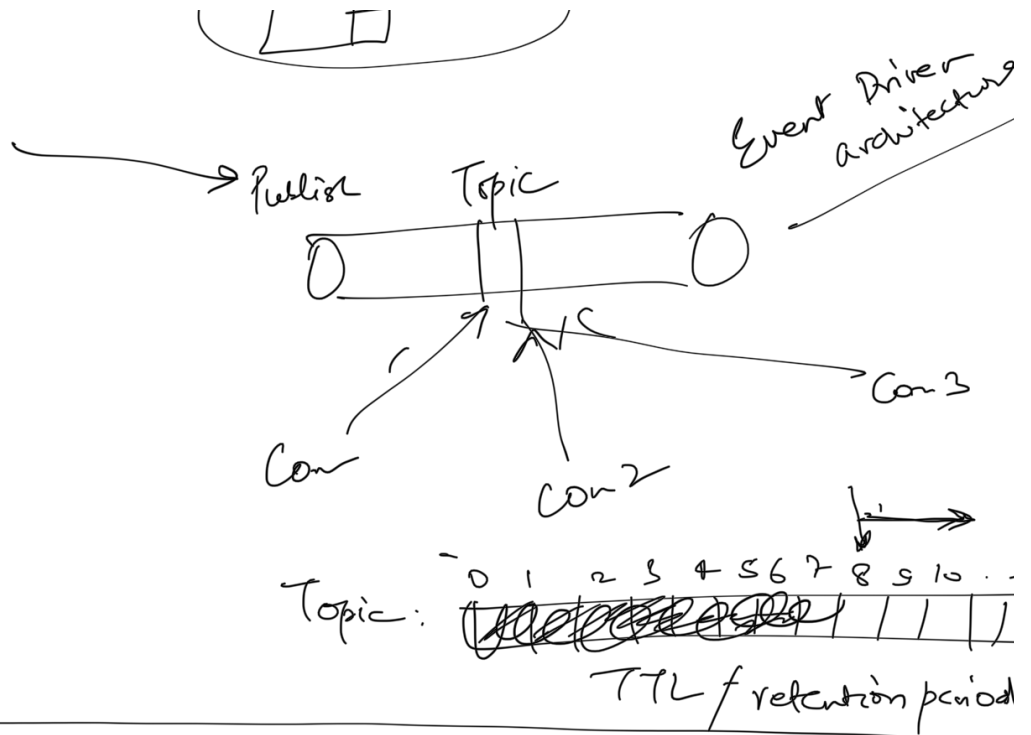 Event Driver
architecture
Publish
Topic
Con 3
Con
Con 2
0 1 2 3 4 5 6 7 8 9 10 . .
Topic :
TTL / retention period